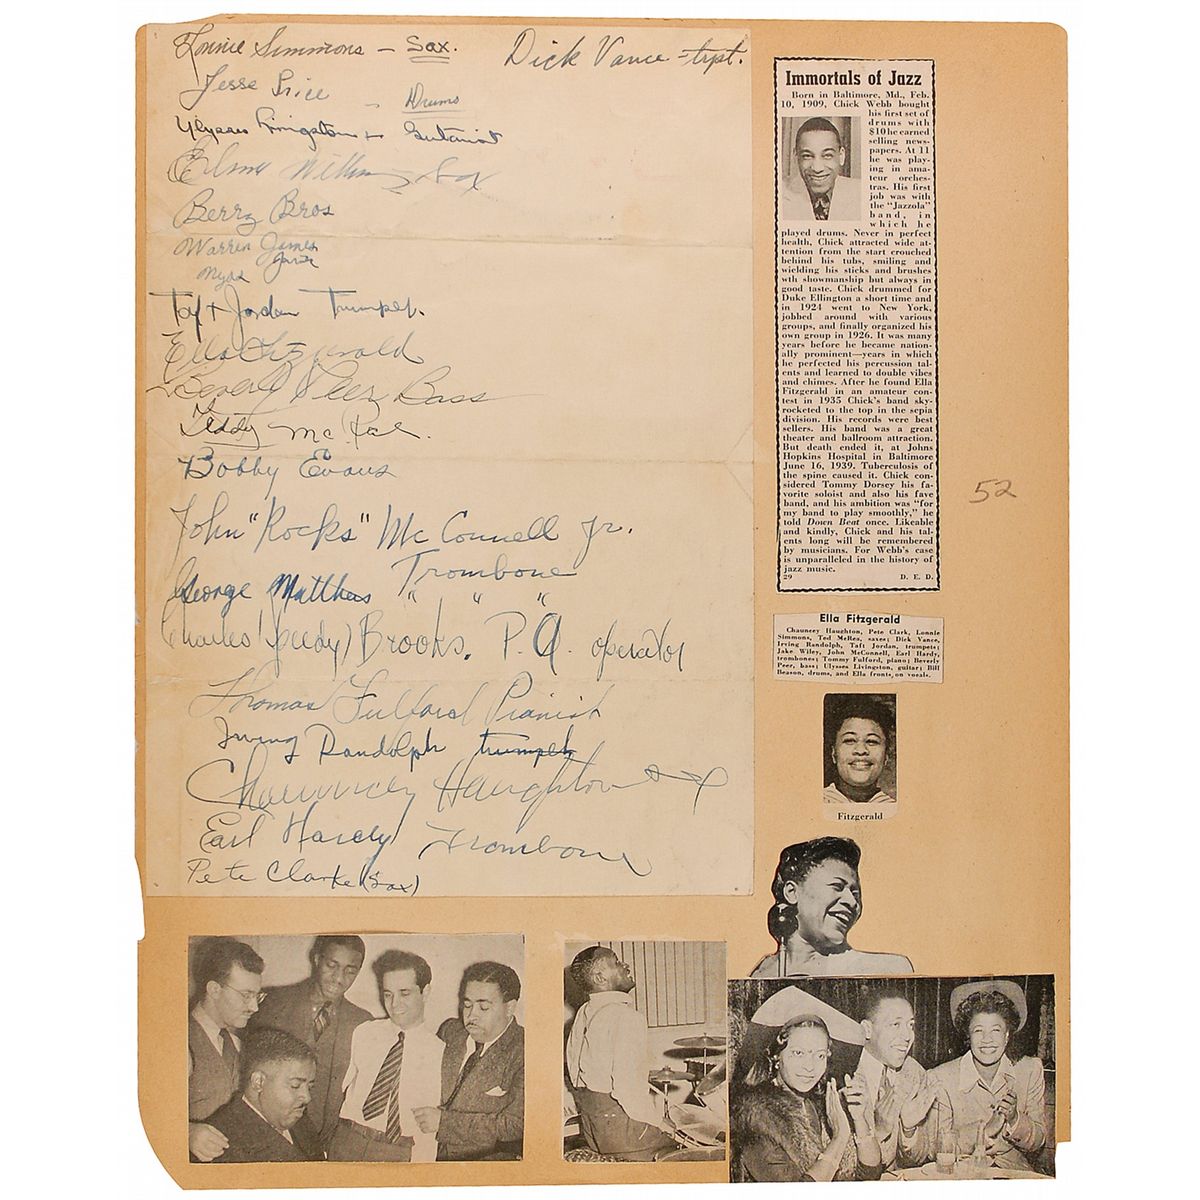 Lonnie Simmons - Sax.
Dick Vance - trpt.
Jesse Price - Drums
Ulysses Livingston Guitarist
Sax
Berry Bros
Warren James
Nyas
Taft Jordan Trumpet.
Ella Fitzgerald
Beverly Peer Bass
Teddy McRae.
Bobby Evans
John "Rocks" McConnell Jr.
Trombone
George Matthews " " "
Charles (Speedy) Brooks. P.A. operator
Thomas Fulford Pianist
Irving Randolph trumpet
Chauncey Haughton sax
Earl Hardy Trombone
Pete Clarke (Sax)
Immortals of Jazz
Born in Baltimore, Md., Feb.
10, 1909, Chick Webb bought
his first set of
drums with
$10 he earned
selling news-
papers. At 11
he was play-
ing in ama-
teur orches-
tras. His first
job was with
the "Jazzola"
band, in
which he
played drums. Never in perfect
health, Chick attracted wide at-
tention from the start crouched
behind his tubs, smiling and
wielding his sticks and brushes
wth showmanship but always in
good taste. Chick drummed for
Duke Ellington a short time and
in 1924 went to New York,
jobbed around with various
groups, and finally organized his
own group in 1926. It was many
years before he became nation-
ally prominent—years in which
he perfected his percussion tal-
ents and learned to double vibes
and chimes. After he found Ella
Fitzgerald in an amateur con-
test in 1935 Chick's band sky-
rocketed to the top in the sepia
division. His records were best
sellers. His band was a great
theater and ballroom attraction.
But death ended it, at Johns
Hopkins Hospital in Baltimore
June 16, 1939. Tuberculosis of
the spine caused it. Chick con-
sidered Tommy Dorsey his fa-
vorite soloist and also his fave
band, and his ambition was "for
my band to play smoothly," he
told Down Beat once. Likeable
and kindly, Chick and his tal-
ents long will be remembered
by musicians. For Webb's case
is unparalleled in the history of
jazz music.
29 D. E. D.
52
Ella Fitzgerald
Chauncey Haughton, Pete Clark, Lonnie
Simmons, Ted McRea, saxes; Dick Vance,
Irving Randolph, Taft Jordan, trumpets;
Jake Wiley, John McConnell, Earl Hardy,
trombones; Tommy Fulford, piano; Beverly
Peer, bass; Ulysses Livingston, guitar; Bill
Beason, drums, and Ella fronts, on vocals.
Fitzgerald